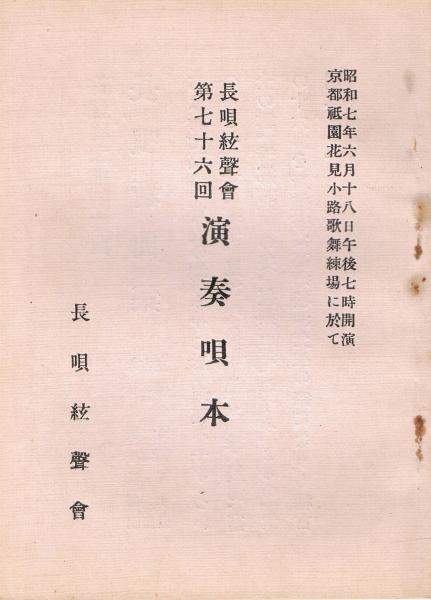 昭和七年六月十八日午後七時開演
京都祇園花見小路歌舞練場に於て
長唄絃聲會
第七十六回
演奏唄本
長唄絃聲會